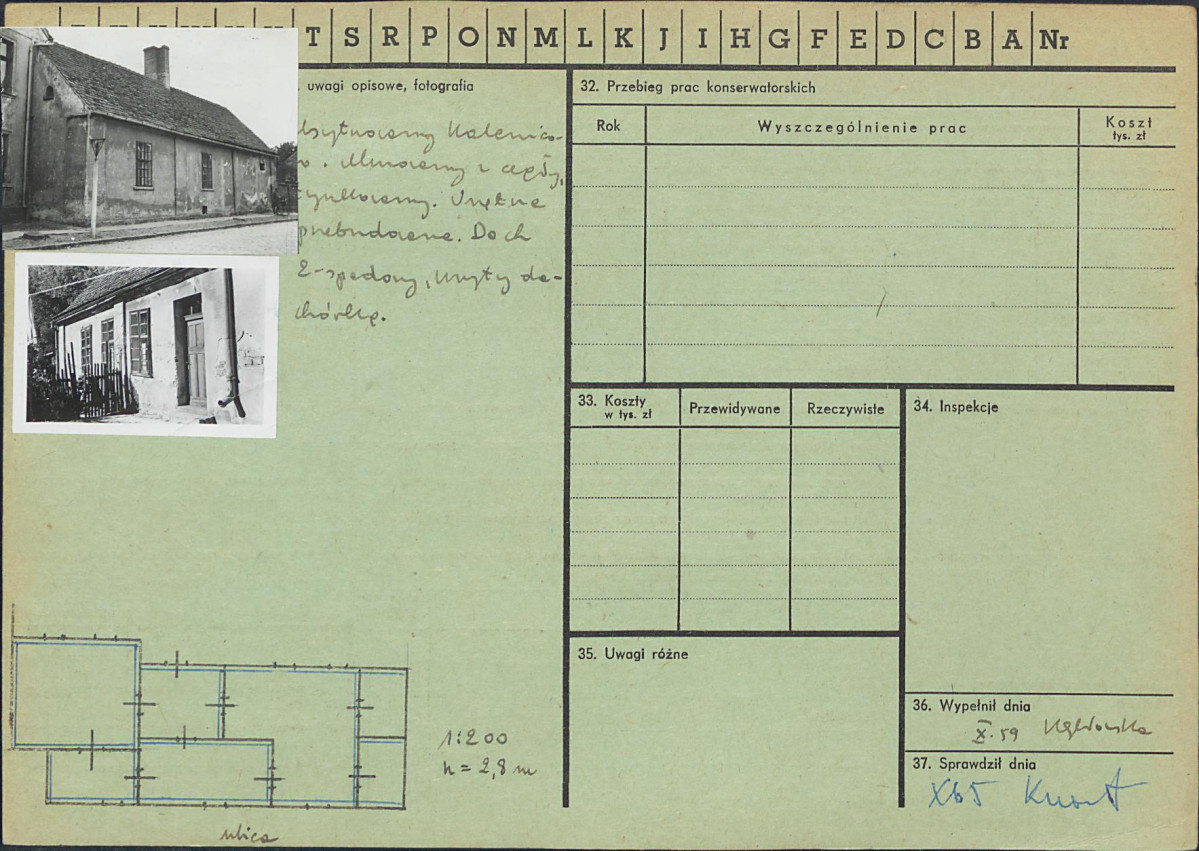 T S R P O N M L K J I H G F E D C B A Nr
uwagi opisowe, fotografia
. Murowany z cegły,
tynkowany. Wnętrze
przebudowane. Dach
2-spadowy, kryty da-
chówką.
1:200
h = 2,8 m
ulica
32. Przebieg prac konserwatorskich
Rok Wyszczególnienie prac Koszt
tys. zł
33. Koszty
w tys. zł
Przewidywane Rzeczywiste
34. Inspekcje
35. Uwagi różne
36. Wypełnił dnia
X.59
37. Sprawdził dnia
X65